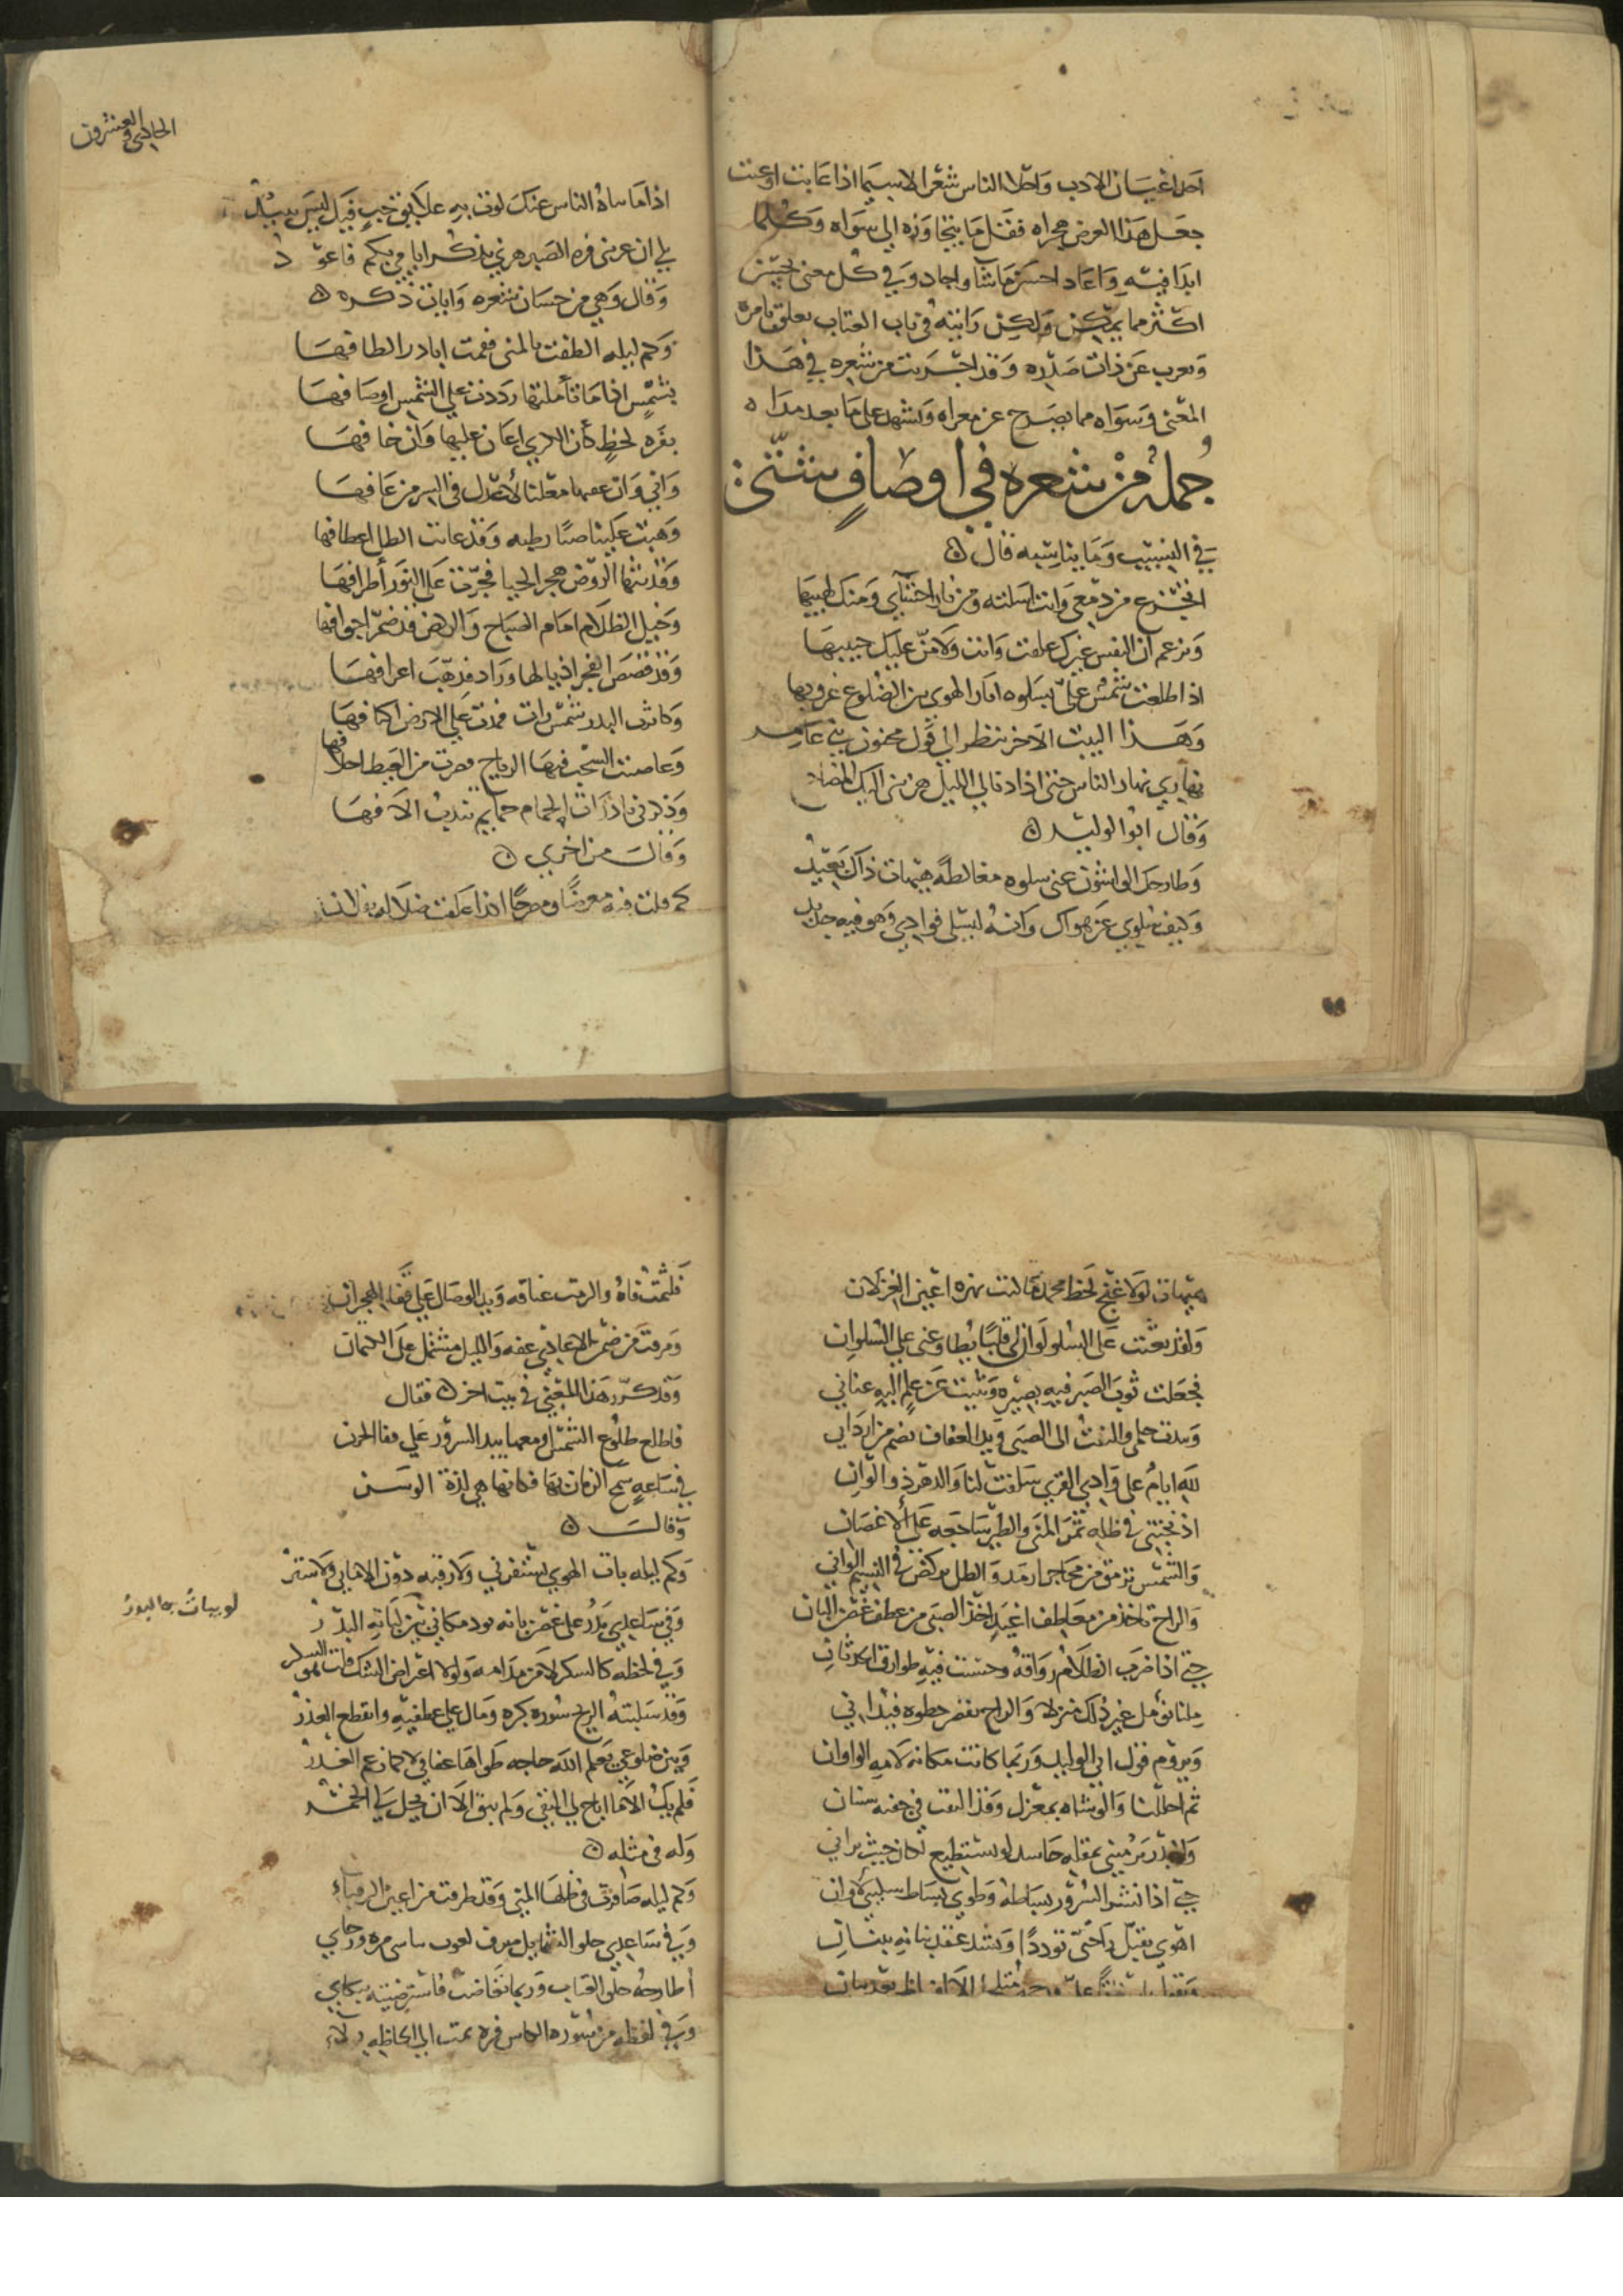 احد اعيان الادب واحلا الناس شعرا لاسيما اذا عاتب او عتب
جعل هذا الغرض هجراه فقل ما يتجاوزه الى سواه وكلما
ابدا فيه واعاد احسن ما شا واجاد وفي كل معنى يحسن
اكثر مما يمكن ولكن رايته في باب العتاب تعلق بامره
وتعرب عن ذات صدره وقد اجريت من شعره في هذا
المعنى وسواه مما يصرح عن معزاه ويشهد على ما بعد مداه
جملة من شعره في اوصاف شتى
في النسيب وما يناسبه قال
اتجزع من دمعي وانت اسلته ومن نار احشاي ومنك لهيبها
وتزعم ان النفس غيرك علقت وانت ولا من عليك حبيبها
اذا طلعت شمس علي بسلوه اثار الهوى بين الضلوع غروبها
وهذا البيت الاخر ينظر الى قول مجنون بني عامر
نهاري نهار الناس حتى اذا دنا لي الليل هزتني اليك المضاجع
وقال ابو الوليد
وطارحك الواشون عني سلوه مغالطة هيهات ذاك بعيد
وكيف سلوي عن هواك وانه ليبلى فوادي وهو فيه جديد
الحادي والعشرون
اذا ما ساه الناس عنك لوت به علايق حب قبل ليس يبيد
بلى ان عرتني فره الصبر هزني تذكر ايامي بكم فاعود
وقال وهي من حسان شعره وايات ذكره
وكم ليله الطفت بالمنى فقمت ابادر الطافها
بشمس اذا ما تأملتها رددت على الشمس اوصافها
بفره لحظ كأن الردي اعان عليها وان خافها
واني وان عفها معلنا لأعدل في السر من عافها
وهبت علينا صبا رطبه وقد عانت الطل اعطافها
وقد شها الروض هجر الحيا فجرت على النور أطرافها
وخيل الظلام امام الصباح والركض قد ضمر اجوافها
وقد فضض الفجر اذيالها وزاد فذهب اعرافها
وكانت البدر شمس رات فمدت على الارض اكنافها
وعاصت السحب فيها الرياح فمرت من الغيظ اخلافها
وذكرني نازات الحمام حمايم تندب الافها
وقال من اخرى
كم قلت فيه معرضا ومصرحا اذ اعلقت ضلالها
هيهات لولا غنج لحظ محمد ما لنت بنره اعين الغزلان
ولقد بعثت على السلو لو ان لي قلبا يطاوعني على السلوان
فجعلت ثوب الصبر فيه بصيره وثنيت عن علم اليه عناني
وبدت حلي والتفت الى الصبى ويد العفاف تضم من اردايي
لله ايام على وادي القرى سلفت لنا والدهر ذو الوان
اذ نجتني في ظله ثمر المنى والطير ساجعه على الاغصان
والشمس ترمق من محاجر ارمد والطل يركض في النسيم الواني
والراح تاخذ من معاطف اغيد اخذ الصبى من عطف غصن البان
حتى اذا ضرب الظلام رواقه وخشيت فيه طوارق الحدثان
ملنا نؤمل غير ذلك منزلا والراح تقصر خطوه فيداني
ويروم قول ابي الوليد وربما كانت مكان لامه الواوان
ثم احللنا والوشاه بمعزل وقد التقت في جفنه سنتان
والبدر يرميني بمقله حاسد لو يستطيع لكان حيث يراني
حتى اذا نشر السرور بساطه وطوى بساط سلبي لاوان
اهوى يقبل راحتي توددا وشد عقد بنانه ببناني
فلثمت فاه والزمت عناقه ويد الوصال على قفا الهجران
ومرقت من ضمر الاعادي عفه والليل مشتمل على الكتمان
وقد كرر هذا المعنى في بيت اخر فقال
فاطلع طلوع الشمس ومعها يد السرور على قفا الحزن
في ساعه سمح الزمان بها فكانها هي لذة الوسن
وقال
وكم ليله بات الهوى يستفزني ولا رقبه دون الاماني ولا ستر
وفي ساعدي بدر على غصن بانه يود مكاني بين لباته البدر
وفي لحظه كالسكر لا من مدامه ولولا اعتراض الشك قلت هو السكر
وقد سلبته الريح سوره بكره ومال على عطفيه وانقطع العذر
وبين ضلوعي يعلم الله حاجه طواها عفافي لا كما زعم الغدر
فلم يك الا ما اباح لي التقى ولم يبق الا ان تحل لي الخمر
وله في مثله
وكم ليله صافحت في ظلها المنى وقد طرفت من اعين الرقباء
وفي ساعدي حلو الشمايل مترف لعوب بياسي مره ورجاي
أطارحه حلو العتاب وربما تغاضب فاسترضيته ببكاي
وفي لفظه من سوره الكاس فره تمت الى الحاظه بولاء